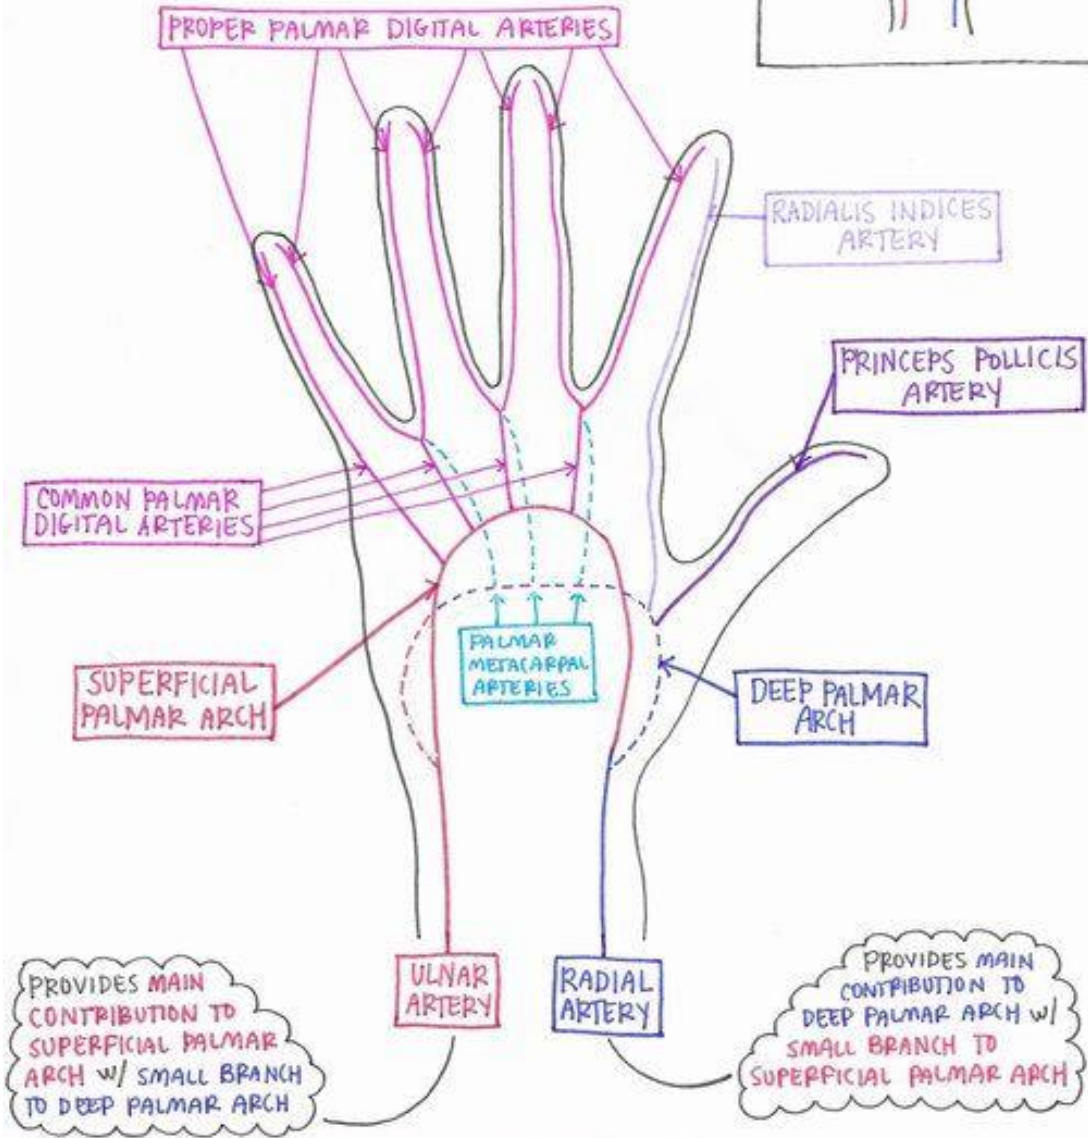 PROPER PALMAR DIGITAL ARTERIES
RADIALIS INDICES
ARTERY
PRINCEPS POLLICIS
ARTERY
COMMON PALMAR
DIGITAL ARTERIES
PALMAR
METACARPAL
ARTERIES
SUPERFICIAL
PALMAR ARCH
DEEP PALMAR
ARCH
ULNAR
ARTERY
RADIAL
ARTERY
PROVIDES MAIN
CONTRIBUTION TO
SUPERFICIAL PALMAR
ARCH W/ SMALL BRANCH
TO DEEP PALMAR ARCH
PROVIDES MAIN
CONTRIBUTION TO
DEEP PALMAR ARCH W/
SMALL BRANCH TO
SUPERFICIAL PALMAR ARCH